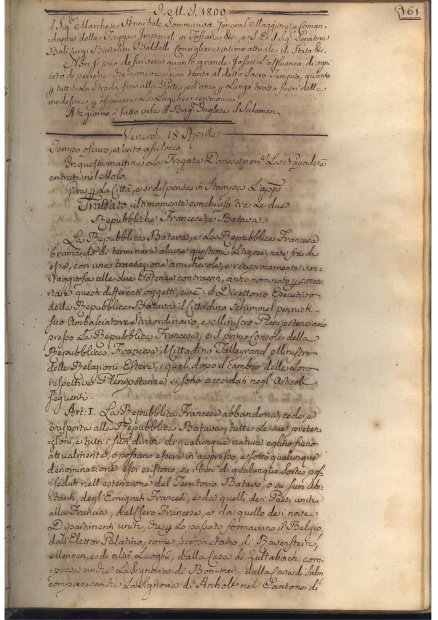 I. M. I. 1800
161
Sig.re Marchese Annibale Sommariva General Maggiore, e Coman-
dante delle Truppe Imperial. in Toscana &c., e S. E. il Sig.r Senatore
Balì Luigi Bartolini Baldelli Consigliere intimo attuale di Stato &c.
Non si può descrivere quanto grande fosse l'affluenza di ogni
ceto di persone che concorsero non tanto al detto Sacro Tempio, quanto
p. tutta la Strada fino alla Porta, ed anco p. Lungo tratto fuori delle
medesime
Al giorno è fatto vela il Brig. Inglese di Salomon.
Venerdì 18 Aprile
Tempo oscuro, e Vento a scilocco.
In questa mattina la Fregata Danese nom.ta La Nayade è
entrata nel Molo.
Gira p. la Città, e si dispensa in Stampa L'app.o
Trattato ultimamente concluso tra Le due
Repubbliche Francese, e Batava.
La Repubblica Batava, e La Repubblica Francese
bramando di terminare alcune questioni insorte, nate fra di
esse, con una transazione amichevole, e reciprocamente van-
taggiosa alle due Potenze contraenti, anno nominato p. concer-
tare questi differenti oggetti, cioè il Direttorio Esecutivo
della Repubblica Batava il Cittadino Schimmelpennick
suo Ambasciatore straordinario, e Ministro Plenipotenziario
presso La Repubblica Francese; e il primo Console della
Repubblica Francese il Cittadino Talleyrand Ministro
delle Relazioni Estere, i quali dopo il cambio delle Loro
respettive Plenipotenze si sono accordati negl'Articoli
seguenti.
Art: I. La Repubblica Francese abbandona, cede, e
trasporta alla Repubblica Batava, tutte le sue preten-
zioni, e tutti i suoi diritti di qualunque natura eglino sieno
attualmente, o possano essere in appresso, e sotto qualunque
denominazione essi esistono, su i beni di qualunque Sorta, pos-
seduti nell'estensione del Territorio Batavo, o su suoi Abi-
tanti, degl'Emigrati Francesi, e da quelli dei Paesi uniti
alla Francia, dal Clero Francese, e da quello de i nove
Dipartimenti uniti, che p. Lo passato formavano il Belgio,
dall'Elettor Palatino, come proprietario di Ravenstein,
Megen, e di altri Luoghi, dalla Casa di Sultzbach com-
presa anche La Signoria di Bon-tres, dalla Casa di Salm
compresa anche La Signoria di Anholt nel Cantone di